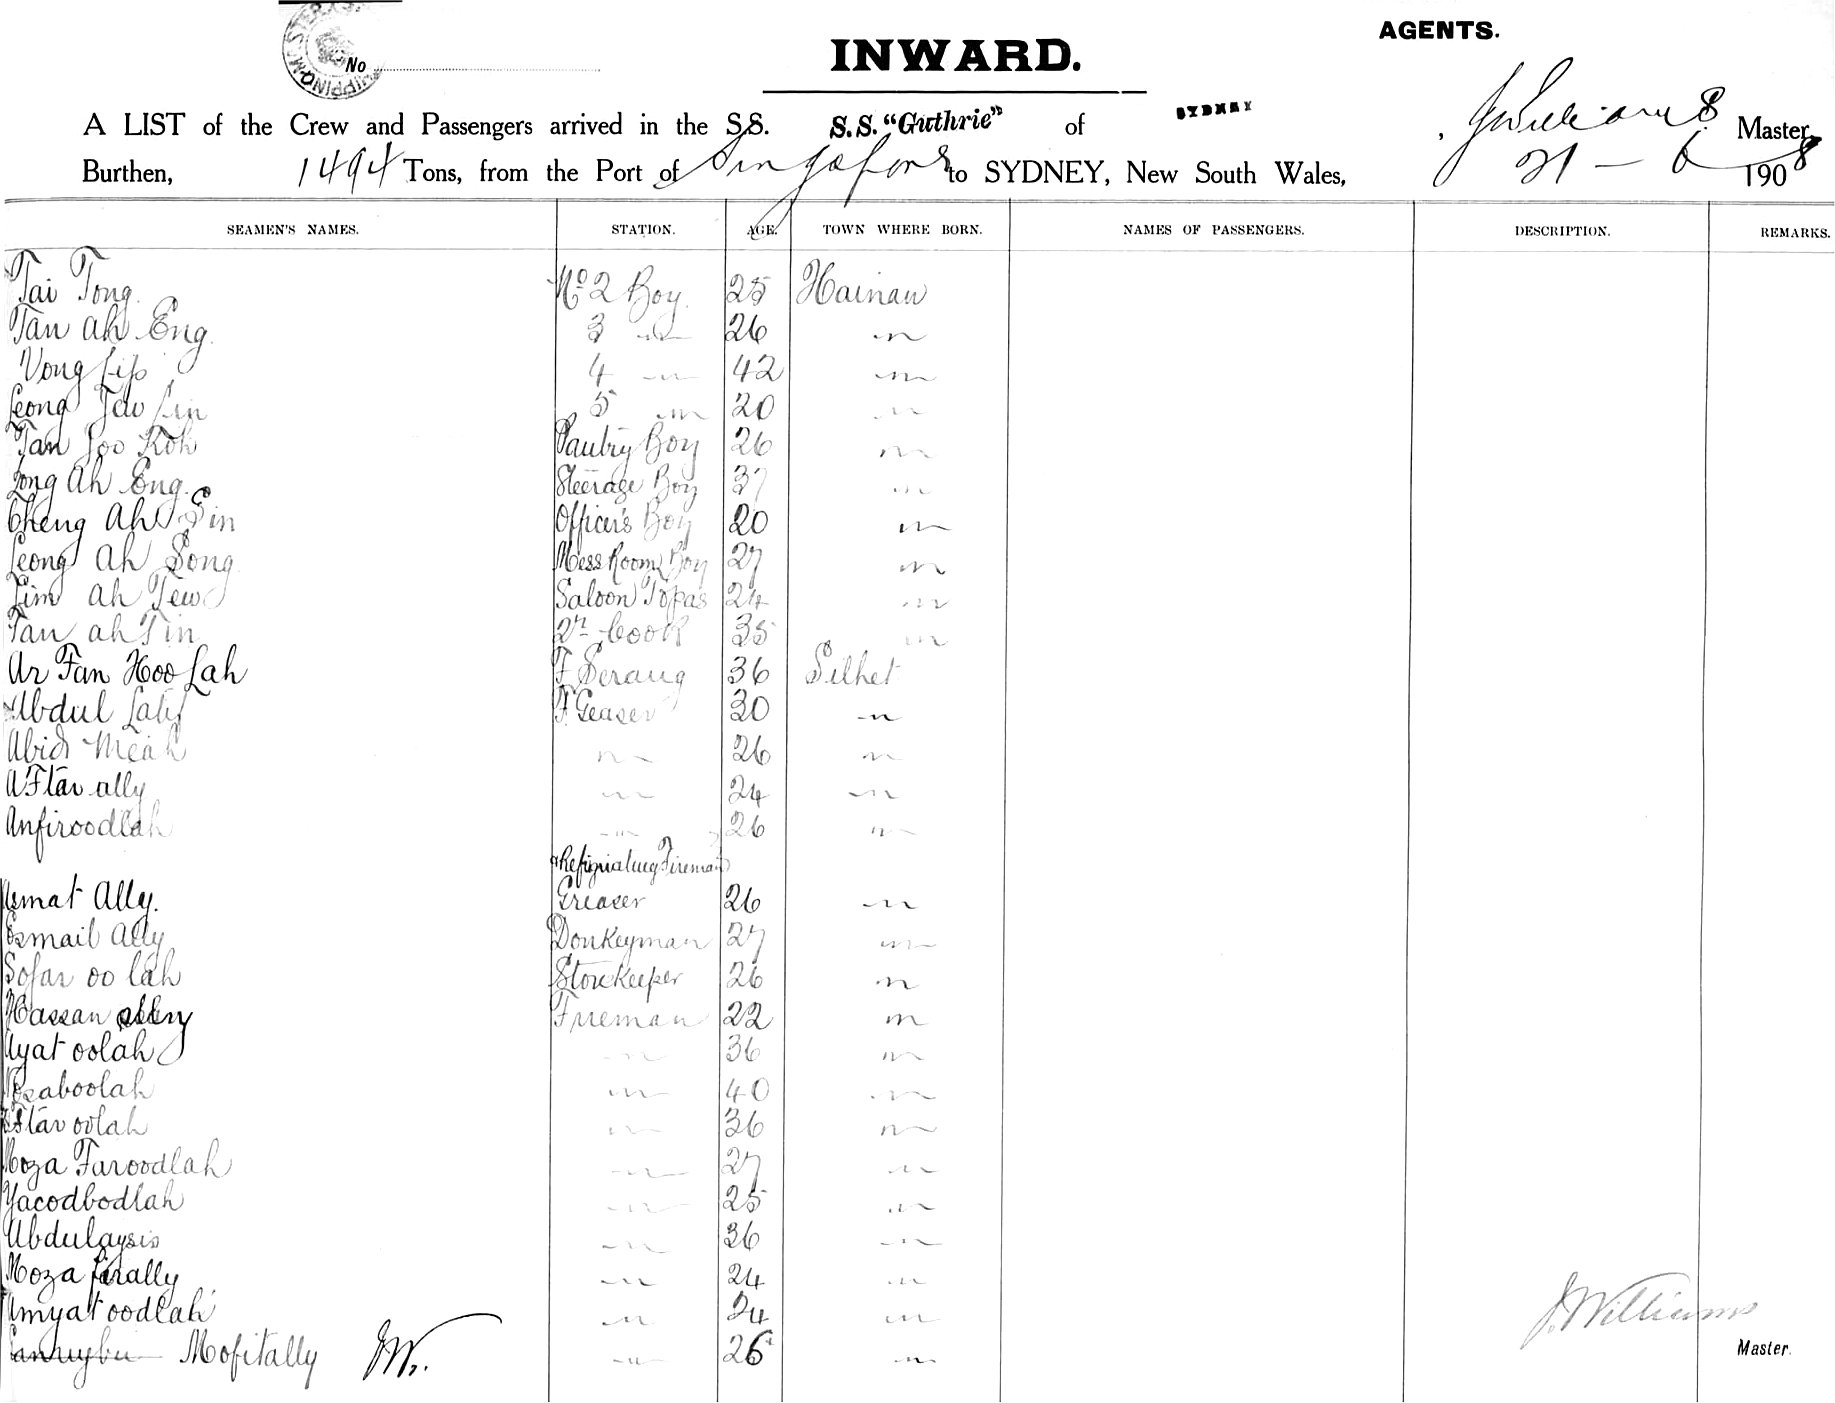 AGENTS.
No
INWARD.
A LIST of the Crew and Passengers arrived in the S.S. S.S. "Guthrie" of SYDNEY, J Williams Master,
Burthen, 1494 Tons, from the Port of Singapore to SYDNEY, New South Wales, 21 - 6 1908
SEAMEN'S NAMES. STATION. AGE. TOWN WHERE BORN. NAMES OF PASSENGERS. DESCRIPTION. REMARKS.
Tai Tong No 2 Boy 25 Hainan
Tan ah Eng 3 " 26 "
Vong Lip 4 " 42 "
Leong Taw Lin 5 " 20 "
Tan Joo Koh Pantry Boy 26 "
Long Ah Eng Steerage Boy 37 "
Cheng Ah Sin Officer's Boy 20 "
Leong Ah Song Mess Room Boy 27 "
Lim ah Tew Saloon Topas 24 "
Tan ah Tin 2n Cook 35 "
Ar Fan Hoo Lah F. Serang 36 Silhet
Abdul Latif F. Greaser 30 "
Abid Meah " 26 "
Aftar ally " 24 "
Anfiroodlah " 26 "
Fireman
Asmat Ally. Greaser 26 "
Esmail Ally Donkeyman 27 "
Sofar oo lah Storekeeper 26 "
Hassan ally Fireman 22 "
Ayat oolah " 36 "
" 40 "
oolah " 36 "
Moza Faroodlah " 27 "
Yacodbodlah " 25 "
Abdulaysis " 36 "
Moza farally " 24 "
Amyat oodlah " 24 "
Mofitally JW. " 26 "
J. Williams
Master.